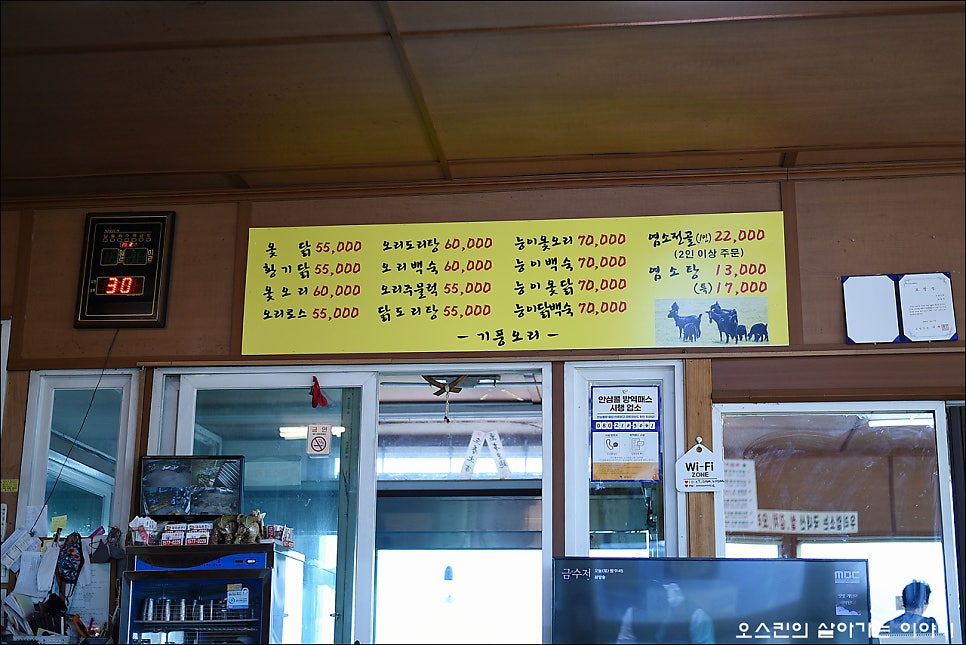 옻 닭 55,000
황기닭 55,000
옻오리 60,000
오리로스 55,000
오리도리탕 60,000
오리백숙 60,000
오리주물럭 55,000
닭도리탕 55,000
능이옻오리 70,000
능이백숙 70,000
능이옻닭 70,000
능이닭백숙 70,000
염소전골(1인) 22,000
(2인 이상 주문)
염소탕 13,000
(특) 17,000
- 기풍오리 -
30
금연
안심콜 방역패스
시행 업소
Wi-Fi
ZONE
금수저
MBC
오스킨의 살아가는 이야기